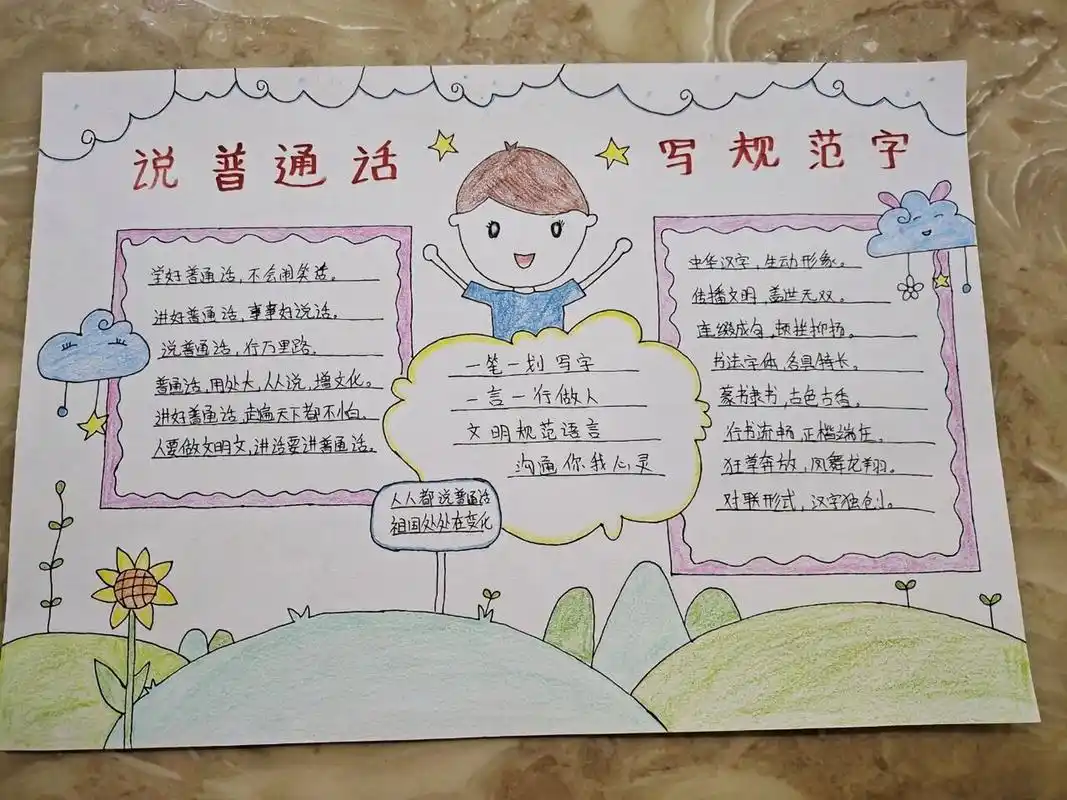 说普通话 写规范字
学好普通话，不会闹笑话。
讲好普通话，事事好说话。
说普通话，行万里路。
普通话，用处大，人人说，增文化。
讲好普通话，走遍天下都不怕。
人要做文明文，讲话要讲普通话。
一笔一划写字
一言一行做人
文明规范语言
沟通你我心灵
人人都说普通话
祖国处处在变化
中华汉字，生动形象。
传播文明，盖世无双。
连缀成句，顿挫抑扬。
书法字体，各具特长。
篆书隶书，古色古香。
行书流畅，正楷端庄。
狂草奔放，凤舞龙翔。
对联形式，汉字独创。